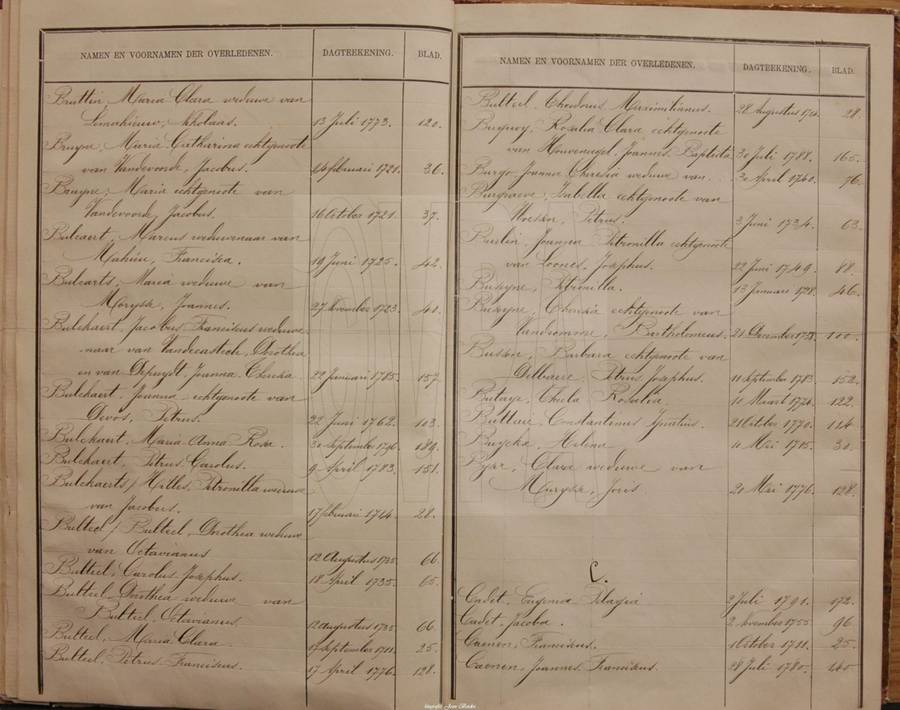 NAMEN EN VOORNAMEN DER OVERLEDENEN. DAGTEEKENING. BLAD.
Bruttin, Maria Clara weduwe van
13 Juli 1773. 120.
Bruyne, Maria Catharina echtgenoote
van Vandevoorde, Jacobus. 14 februari 1721. 36.
Bruyne, Marie echtgenoote van
Vandevoorde, Jacobus. 16 October 1721. 37.
Bulcaert, Marcus weduwenaar van
Mahieu, Francisca. 19 Juni 1725. 42.
Bulcarts, Maria weduwe van
Joannes. 27 November 1723. 40.
Bulckaert, Jacobus Franciscus weduwe
naar van Vandecasteele, Dorothea
en van Depuydt, Joanna Theresia 22 Januari 1785. 157.
Bulckaert, Joanna echtgenoote van
Devos, Petrus. 22 Juni 1762. 113.
Bulckaert, Maria Anna Rosa. 30 September 1796 189.
Bulckaert, Petrus Carolus. 9 April 1783. 151.
Bulckaerts / Hilles, Petronilla weduwe
van Jacobus. 17 februari 1714. 28.
Bulteel / Bulteel, Dorothea weduwe
van Octavianus 12 Augustus 1735 66.
Bulteel, Carolus Josephus. 18 April 1735. 65.
Bulteel, Dorothea weduwe van
Bulteel, Octavianus 12 Augustus 1735 66.
Bulteel, Maria Clara. 17 September 1711. 25.
Bulteel, Petrus Franciscus. 17 April 1776. 128.
NAMEN EN VOORNAMEN DER OVERLEDENEN. DAGTEEKENING. BLAD.
Bulteel, Theodorus Maximilianus. 28 Augustus 28.
Rosalia Clara echtgenoote
van Houvenagel, Joannes Baptista 30 Juli 1788. 165.
Burgo, Joanna Theresia weduwe van. 30 April 1740. 76.
Burgraeve, Isabella echtgenoote van
Petrus. 3 Juni 1734. 63.
Joanna Petronilla echtgenoote
van Loones, Josephus. 22 Juni 1749. 88.
Petronilla. 13 Januari 1728. 46.
Theresia echtgenoote van
Vandromme, Bartholomeus. 21 December 100.
Barbara echtgenoote van
Delbaere, Petrus Josephus. 11 September 1783. 152.
Butaye, Rosalia 11 Maart 1774. 122.
Constantinus Ignatius. 21 October 1770. 114
Helena 11 Mei 1715. 30.
Clara weduwe van
Joris. 20 Mei 1776. 128.
C.
Cadet, Eugenia Pelagia 2 Juli 1791. 172.
Cadet, Jacoba. 2 November 1755 96
Caenen, Franciscus. October 1711. 25.
Caenen, Joannes Franciscus. 28 Juli 1780. 140